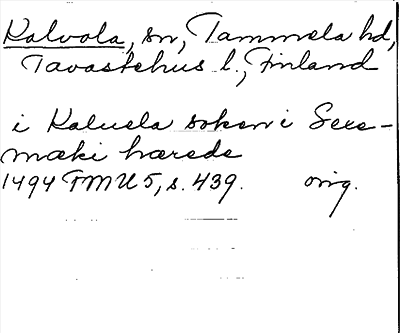 Kalvola, sn, Tammela hd,
Tavastehus l., Finland
i Kaluela soken i Sexe-
mæki hærede
1494 FMU 5, s. 439. orig.